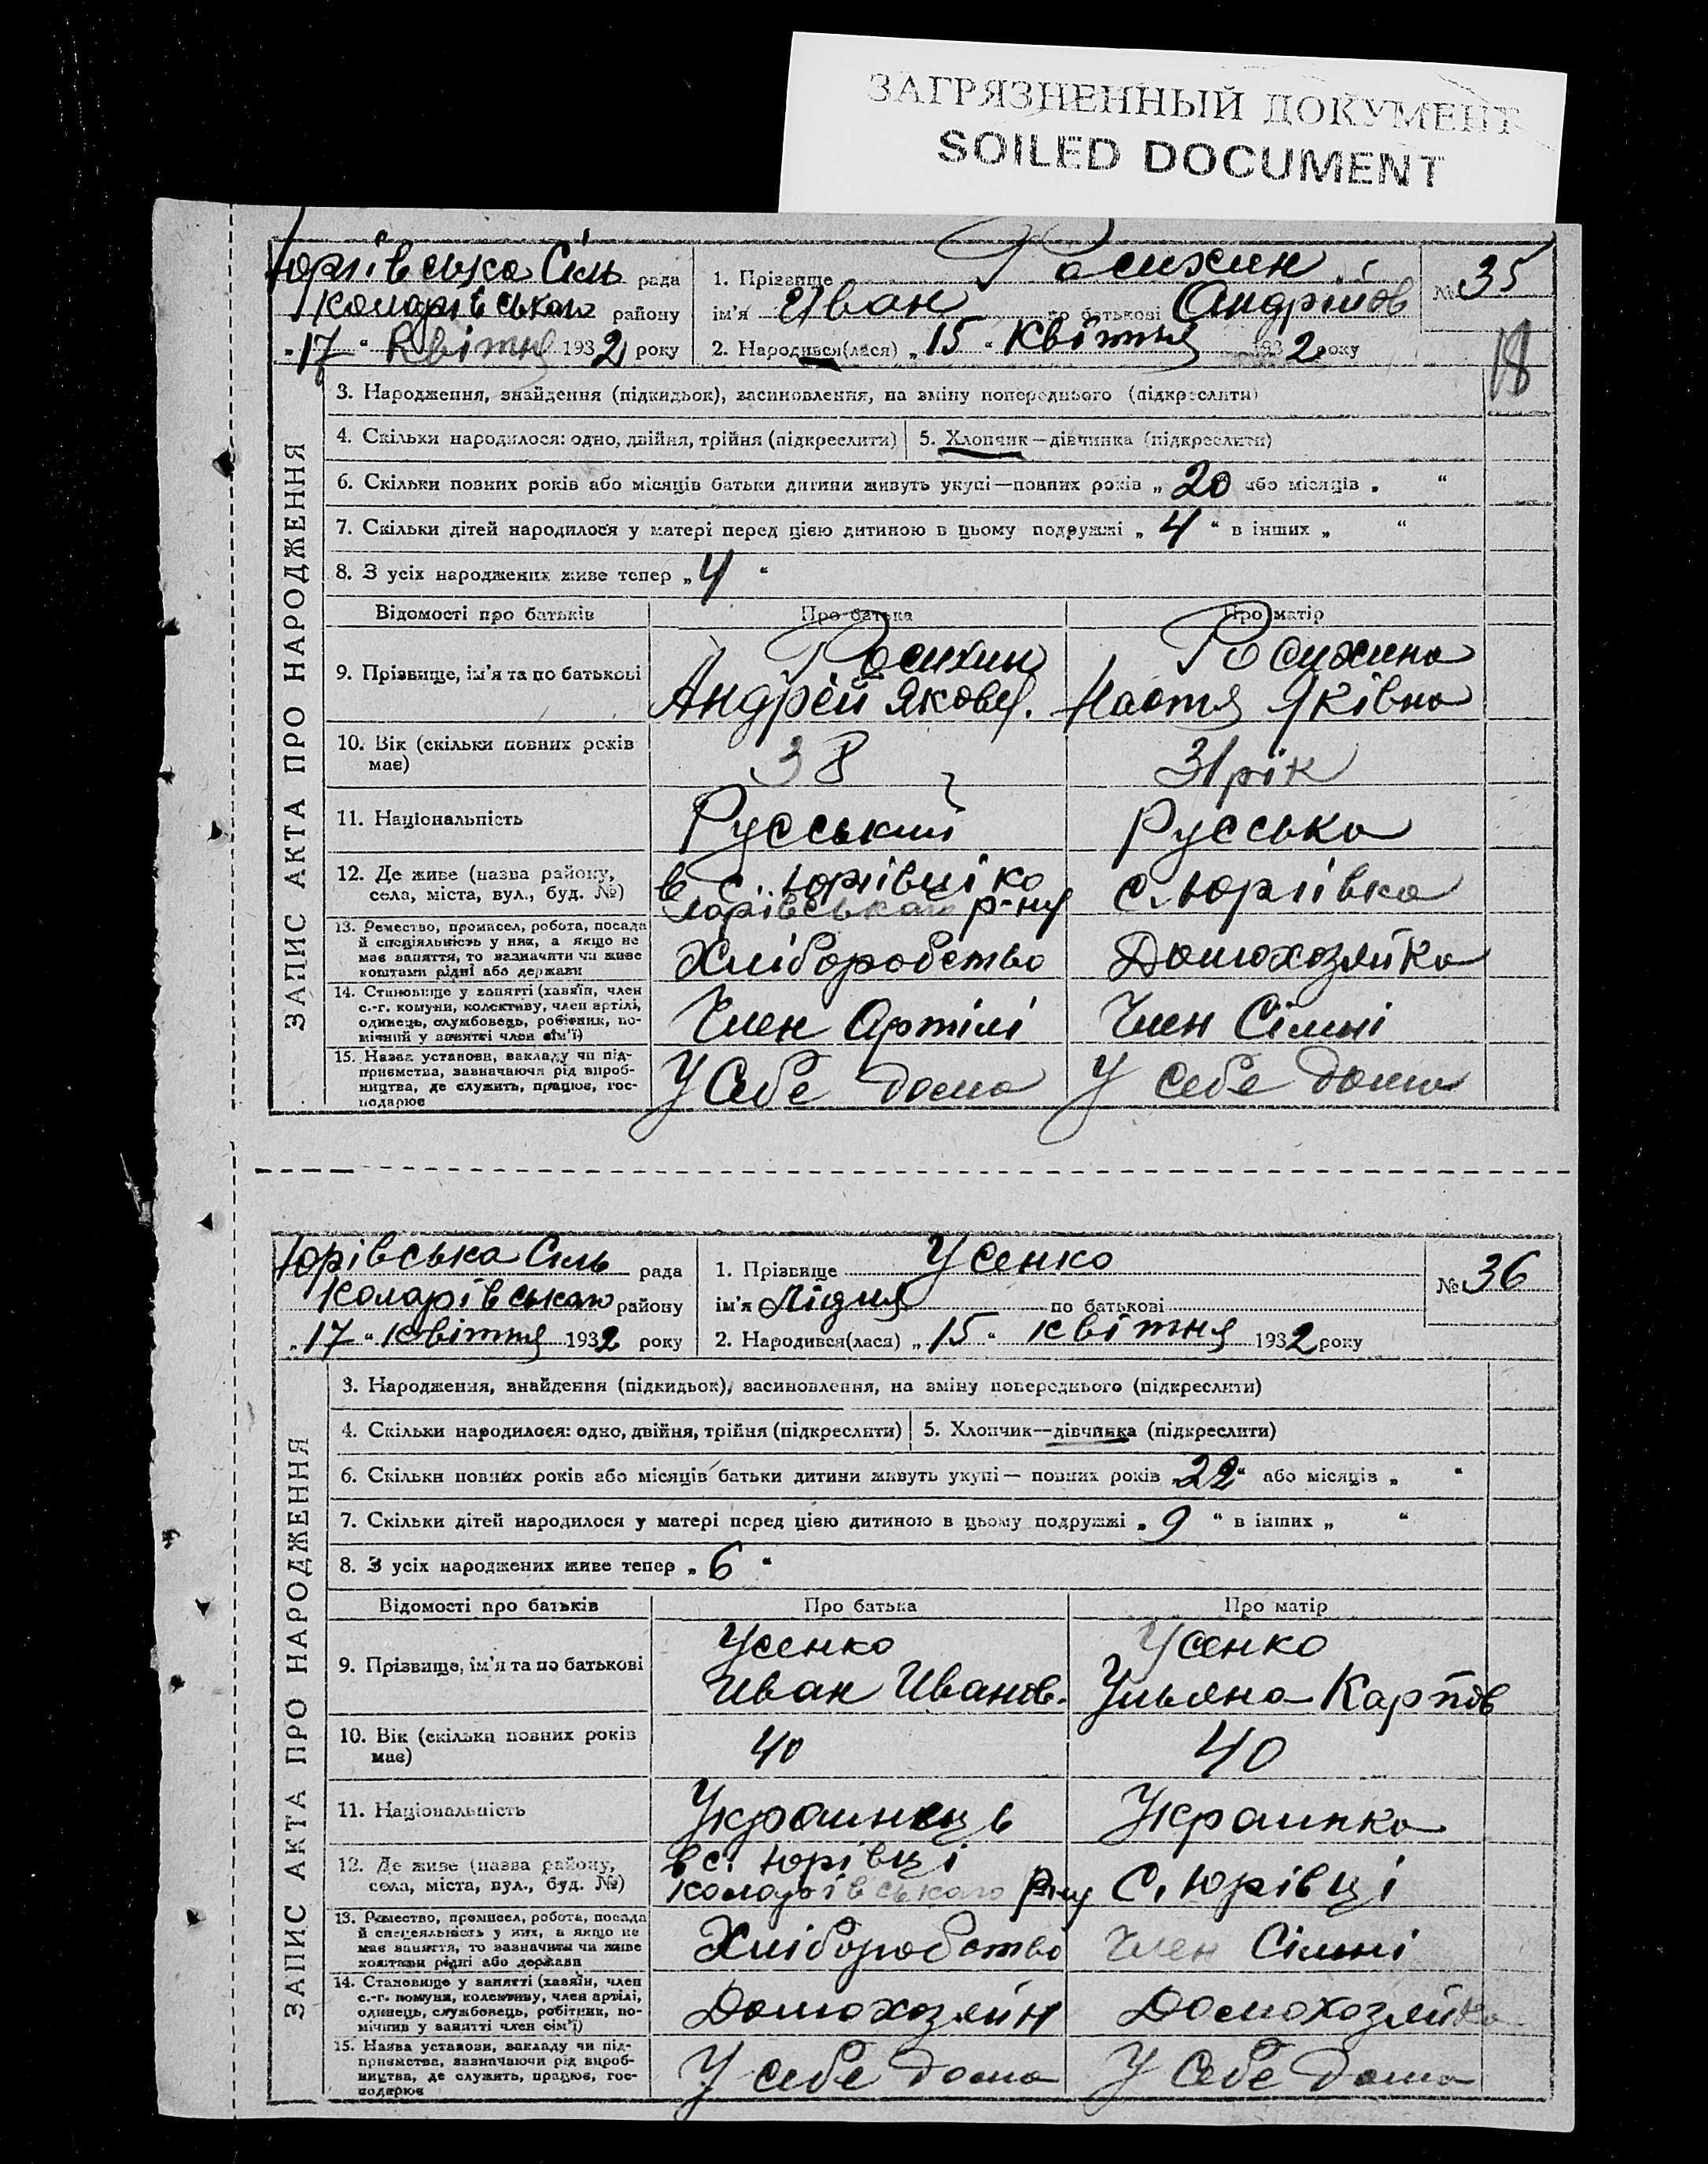 ЗАГРЯЗНЕННЫЙ ДОКУМЕНТ
SOILED DOCUMENT
Юрївська Сіль рада
Коларівського району
„17“ Квітня 1932 року
1. Прізвище
ім'я Иван по батькові Андрійов
2. Народився(лася) „15“ Квітня 1932 року
№ 35
18
ЗАПИС АКТА ПРО НАРОДЖЕННЯ
3. Народження, знайдення (підкидьок), засиновлення, на зміну попереднього (підкреслити)
4. Скільки народилося: одно, двійня, трійня (підкреслити)
5. Хлопчик—дівчинка (підкреслити)
6. Скільки повних років або місяців батьки дитини живуть укупі—повних років „20 або місяців „ “
7. Скільки дітей народилося у матері перед цією дитиною в цьому подружжі „4“ в інших „ “
8. З усіх народжених живе тепер „4“
Відомості про батьків Про батька Про матір
9. Прізвище, ім'я та по батькові
Андрей Яковл. Настя Яківна
10. Вік (скільки повних років має) 38 31 рік
11. Національність Русський Русська
12. Де живе (назва району, села, міста, вул., буд. №)
в с. Юрївці Ко
ларівського р-ну
с. Юрївка
13. Ремество, промисел, робота, посада й спеціяльність у них, а якщо не має заняття, то зазначити чи живе коштами рідні або держави
Хліборобство Домохозяйка
14. Становище у занятті (хазяїн, член с.-г. комуни, колективу, член артілі, одинець, службовець, робітник, помічний у занятті член сім'ї)
Член Артілі Член Сімні
15. Назва установи, закладу чи підприємства, зазначаючи рід виробництва, де служить, працює, господарює
У Себе дома У себе дома
Юрівська Сіль рада
Коларівського району
„17“ квітня 1932 року
1. Прізвище Усенко
ім'я Лідия по батькові
2. Народився(лася) „15“ квітня 1932 року
№ 36
ЗАПИС АКТА ПРО НАРОДЖЕННЯ
3. Народження, знайдення (підкидьок), засиновлення, на зміну попереднього (підкреслити)
4. Скільки народилося: одно, двійня, трійня (підкреслити)
5. Хлопчик—дівчинка (підкреслити)
6. Скільки повних років або місяців батьки дитини живуть укупі— повних років „22“ або місяців „ “
7. Скільки дітей народилося у матері перед цією дитиною в цьому подружжі „9“ в інших „ “
8. З усіх народжених живе тепер „6“
Відомості про батьків Про батька Про матір
9. Прізвище, ім'я та по батькові
Усенко Усенко
Иван Иванов. Ульяна Карпов
10. Вік (скільки повних років має) 40 40
11. Національність Украинець Украинка
12. Де живе (назва району, села, міста, вул., буд. №)
в с. Юрівці
Коларівського р-ну
С. Юрівці
13. Ремество, промисел, робота, посада й спеціяльність у них, а якщо не має заняття, то зазначити чи живе коштами рідні або держави
Хліборобство Член Сімні
14. Становище у занятті (хазяїн, член с.-г. комуни, колективу, член артілі, одинець, службовець, робітник, помічний у занятті член сім'ї)
Домохозяйн Домохозяйка
15. Назва установи, закладу чи підприємства, зазначаючи рід виробництва, де служить, працює, господарює
У себе дома У Себе дома